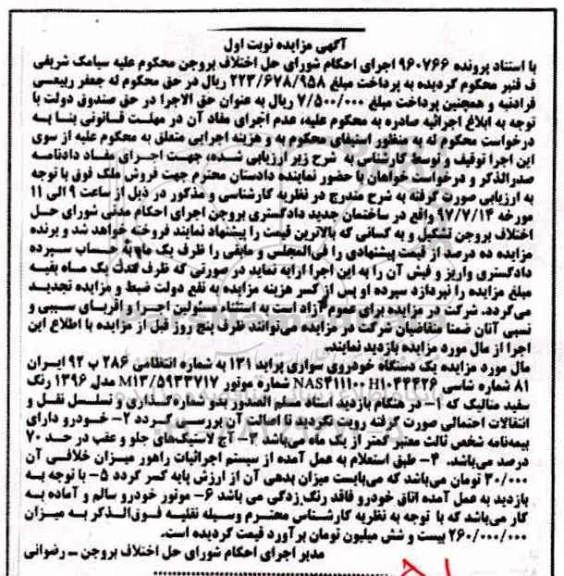 آگهی مزایده نوبت اول
با استناد پرونده ۹۶۰۷۶۶ اجرای احکام شورای حل اختلاف بروجن محکوم علیه سیامک شریفی
ف قنبر محکوم گردیده به پرداخت مبلغ ۲۲۳/۶۷۸/۹۵۸ ریال در حق محکوم له جعفر ربیعی
فرادنبه و همچنین پرداخت مبلغ ۷/۵۰۰/۰۰۰ ریال به عنوان حق الاجرا در حق صندوق دولت با
توجه به ابلاغ اجرائیه صادره به محکوم علیه، عدم اجرای مفاد آن در مهلت قانونی بنا به
درخواست محکوم له به منظور استیفای محکوم به و هزینه اجرایی متعلق به محکوم علیه از سوی
این اجرا توقیف و توسط کارشناسی به شرح زیر ارزیابی شده، جهت اجرای مفاد دادنامه
صدرالذکر و درخواست خواهان با حضور نماینده دادستان محترم جهت فروش ملک فوق با توجه
به ارزیابی صورت گرفته به شرح مندرج در نظریه کارشناسی و مذکور در ذیل از ساعت ۹ الی ۱۱
مورخه ۹۷/۷/۱۴ واقع در ساختمان جدید دادگستری بروجن اجرای احکام مدنی شورای حل
اختلاف بروجن تشکیل و به کسانی که بالاترین قیمت را پیشنهاد نمایند فروخته خواهد شد و برنده
مزایده ده درصد از قیمت پیشنهادی را فی‌المجلس و مابقی را ظرف یک ماه به حساب سپرده
دادگستری واریز و فیش آن را به این اجرا ارایه نماید در صورتی که ظرف مدت یک ماه بقیه
مبلغ مزایده را نپردازد سپرده او پس از کسر هزینه مزایده به نفع دولت ضبط و مزایده تجدید
می‌گردد. شرکت در مزایده برای عموم آزاد است به استثناء مسئولین اجرا و اقربای سببی و
نسبی آنان ضمنا متقاضیان شرکت در مزایده می‌توانند ظرف پنج روز قبل از مزایده با اطلاع این
اجرا از مال مورد مزایده بازدید نمایند.
مال مورد مزایده یک دستگاه خودروی سواری پراید ۱۳۱ به شماره انتظامی ۲۸۶ ب ۹۲ ایران
۸۱ شماره شاسی NAS411100H1044426 شماره موتور M13/5933717 مدل ۱۳۹۶ رنگ
سفید متالیک که ۱- در هنگام بازدید اسناد مسلم الصدور بدو شماره‌گذاری و تسلسل نقل و
انتقالات احتمالی صورت گرفته رویت نگردید تا اصالت آن بررسی گردد ۲- خودرو دارای
بیمه‌نامه شخص ثالث معتبر کمتر از یک ماه می‌باشد ۳- آج لاستیک‌های جلو و عقب در حد ۷۰
درصد می‌باشد. ۴- طبق استعلام به عمل آمده از سیستم اجرائیات راهور میزان خلافی آن
۳۰/۰۰۰ تومان می‌باشد که می‌بایست میزان بدهی آن از ارزش پایه کسر گردد ۵- با توجه به
بازدید به عمل آمده اتاق خودرو فاقد رنگ‌زدگی می باشد ۶- موتور خودرو سالم و آماده به
کار می‌باشد که با توجه به نظریه کارشناسی محترم وسیله نقلیه فوق‌الذکر به میزان
۲۶۰/۰۰۰/۰۰۰ بیست و شش میلیون تومان برآورد قیمت گردیده است.
مدیر اجرای احکام شورای حل اختلاف بروجن - رضوانی